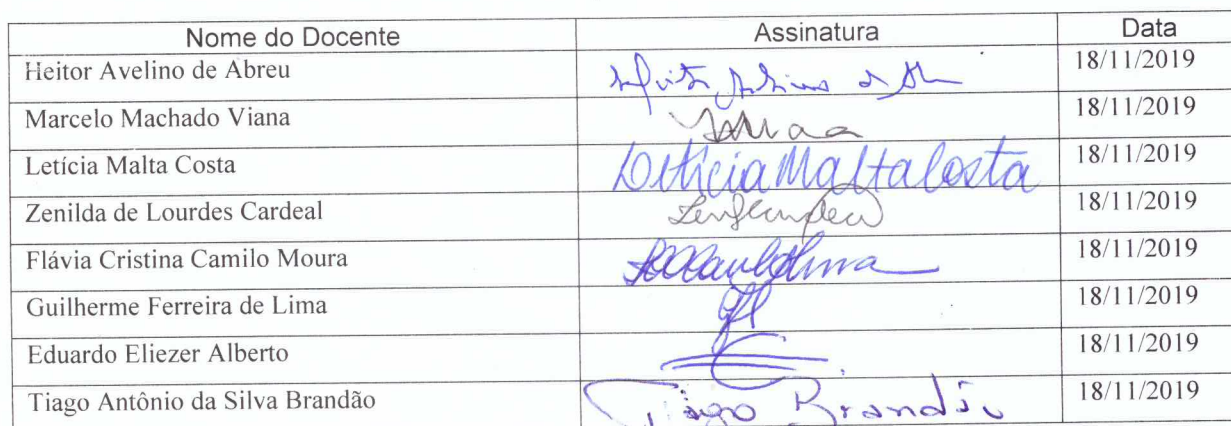 Nome do Docente Assinatura Data
Heitor Avelino de Abreu 18/11/2019
Marcelo Machado Viana 18/11/2019
Letícia Malta Costa Letícia Malta Costa 18/11/2019
Zenilda de Lourdes Cardeal 18/11/2019
Flávia Cristina Camilo Moura 18/11/2019
Guilherme Ferreira de Lima 18/11/2019
Eduardo Eliezer Alberto 18/11/2019
Tiago Antônio da Silva Brandão Tiago Brandão 18/11/2019